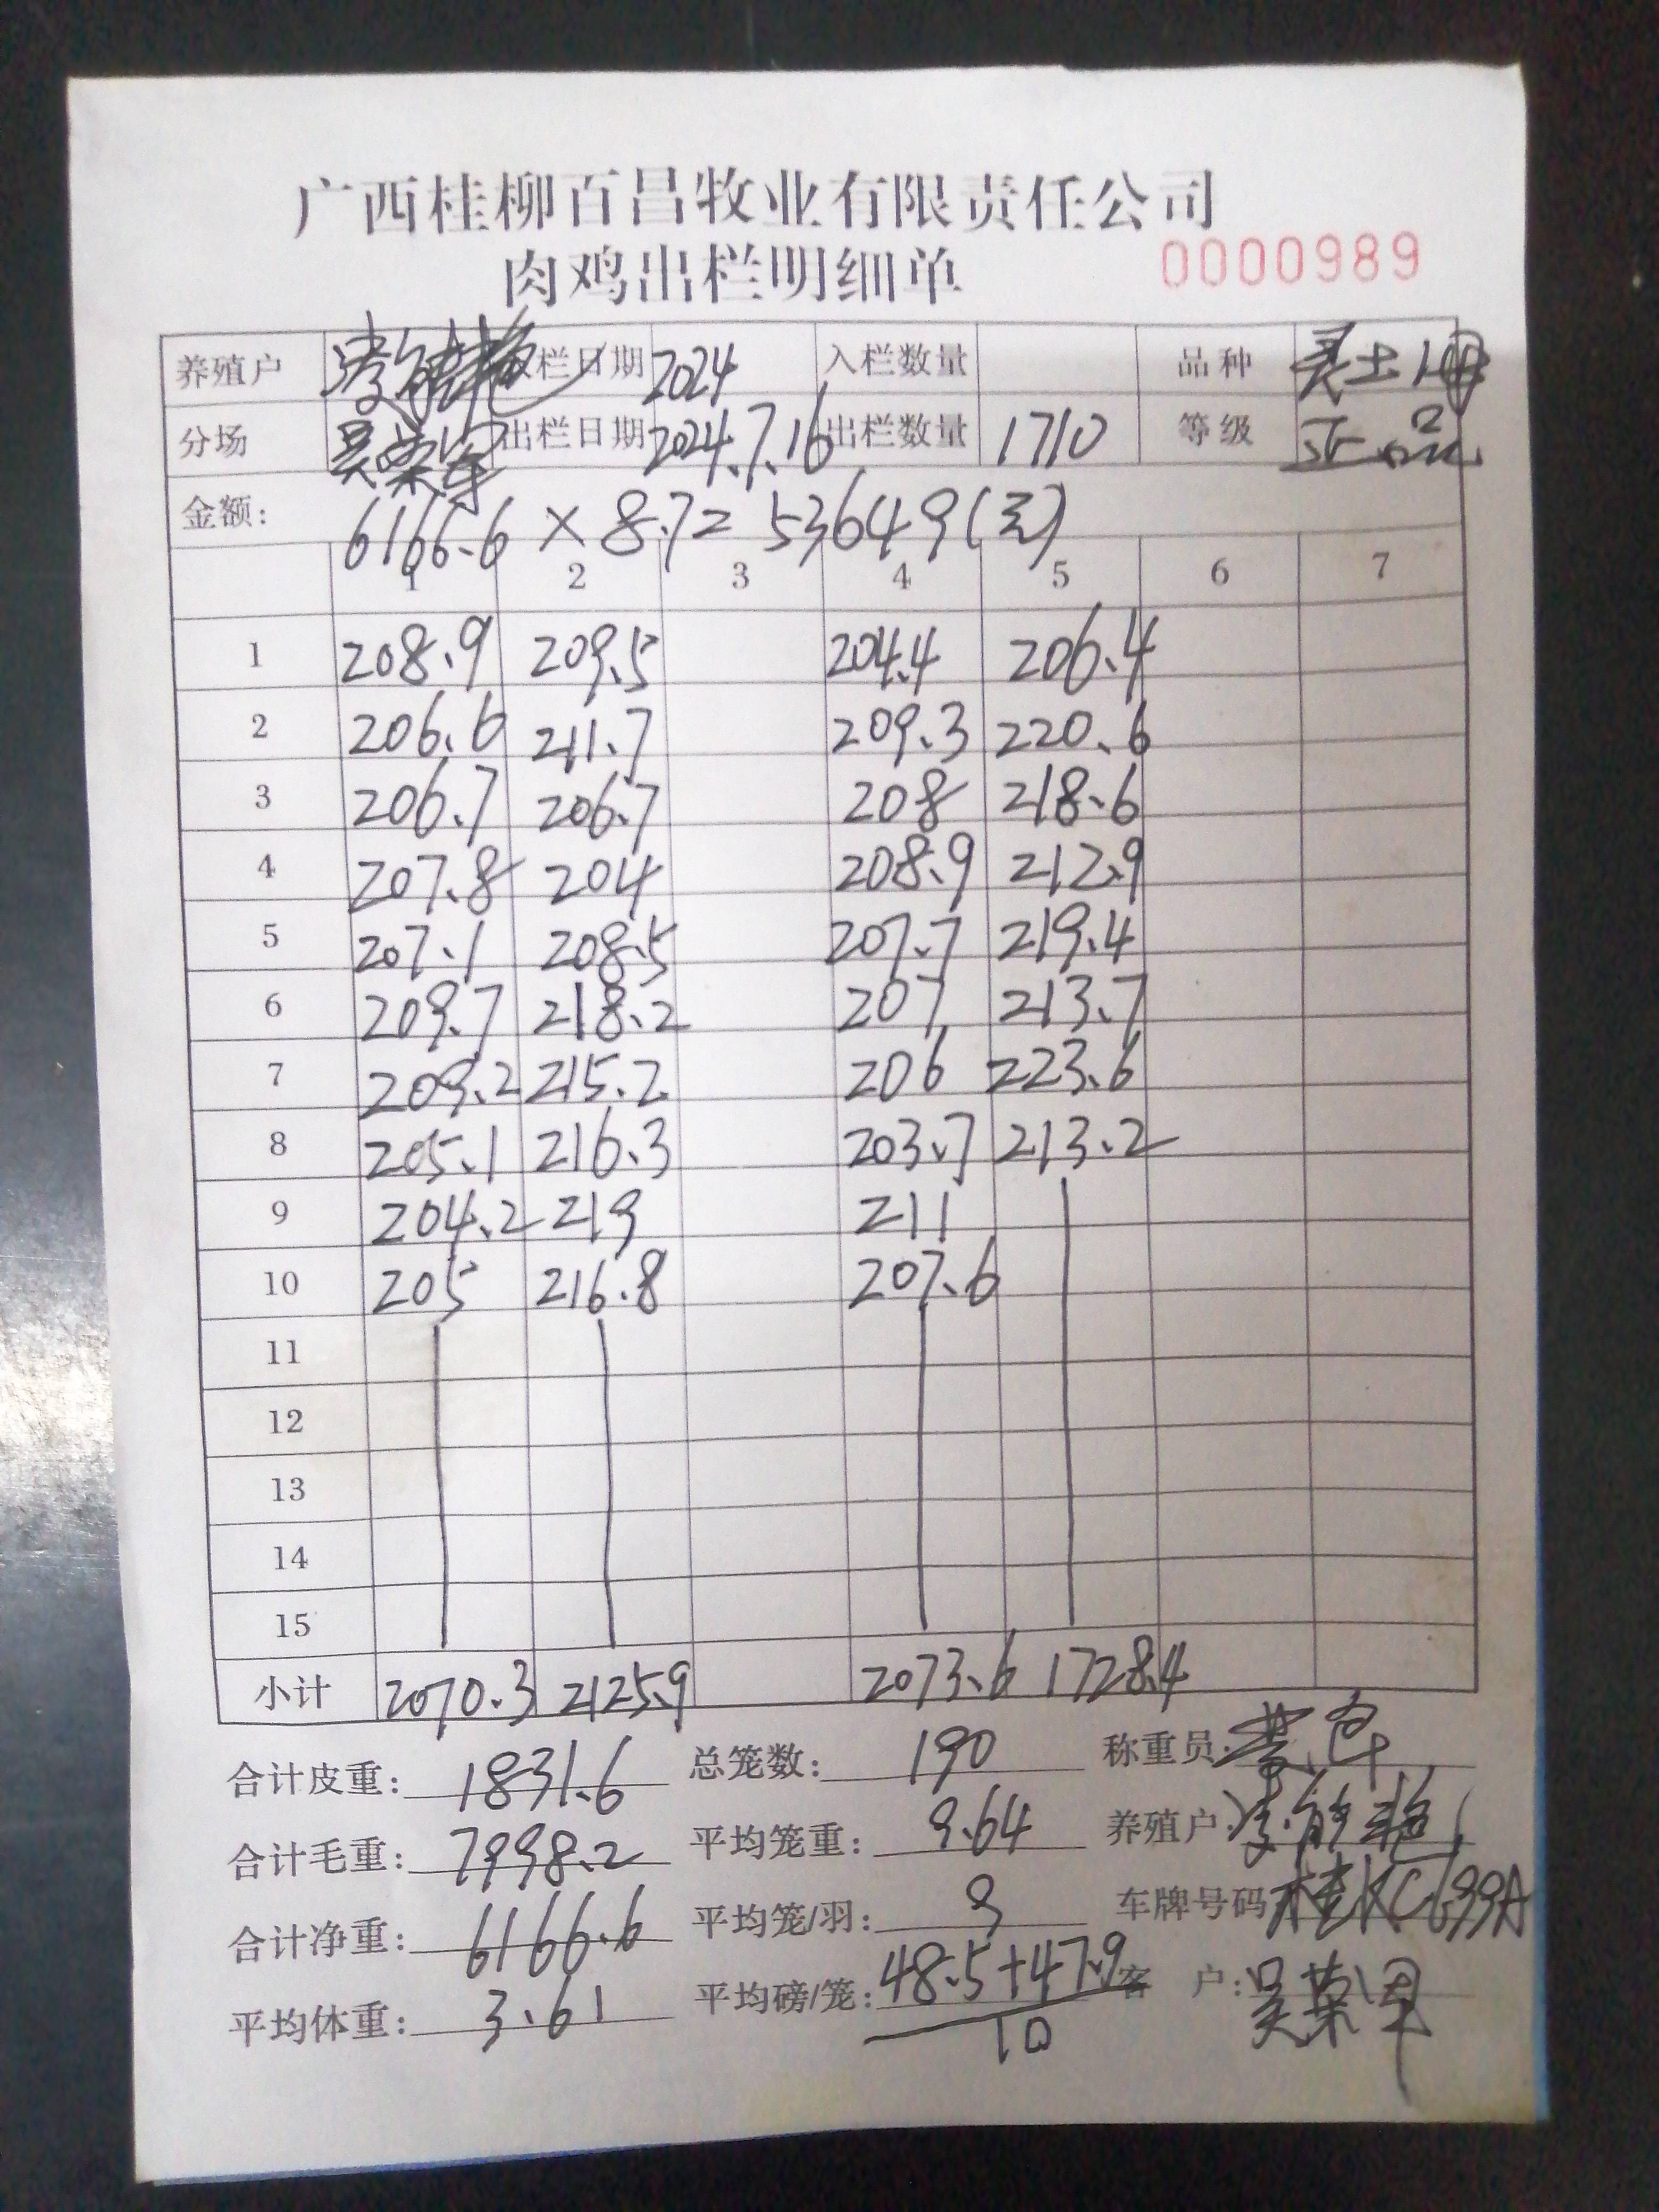 广西桂柳百昌牧业有限责任公司
肉鸡出栏明细单 0000989
养殖户 入栏日期 2024 入栏数量 品种 灵土1母
分场 吴荣军 出栏日期 2024.7.16 出栏数量 1710 等级 正品
金额: 6166.6 × 8.7= 53649(元)
1 2 3 4 5 6 7
1 208.9 209.5 204.4 206.4
2 206.6 211.7 209.3 220.6
3 206.7 206.7 208 218.6
4 207.8 204 208.9 212.9
5 207.1 208.5 207.7 219.4
6 209.7 218.2 207 213.7
7 209.2 215.2 206 223.6
8 205.1 216.3 203.7 213.2
9 204.2 219 211
10 205 216.8 207.6
11
12
13
14
15
小计 2070.3 2125.9 2073.6 1728.4
合计皮重: 1831.6 总笼数: 190 称重员:
合计毛重: 7998.2 平均笼重: 9.64 养殖户:
合计净重: 6166.6 平均笼/羽: 9 车牌号码 桂KC699A
平均体重: 3.61 平均磅/笼: 48.5+47.9 客户: 吴荣军
10